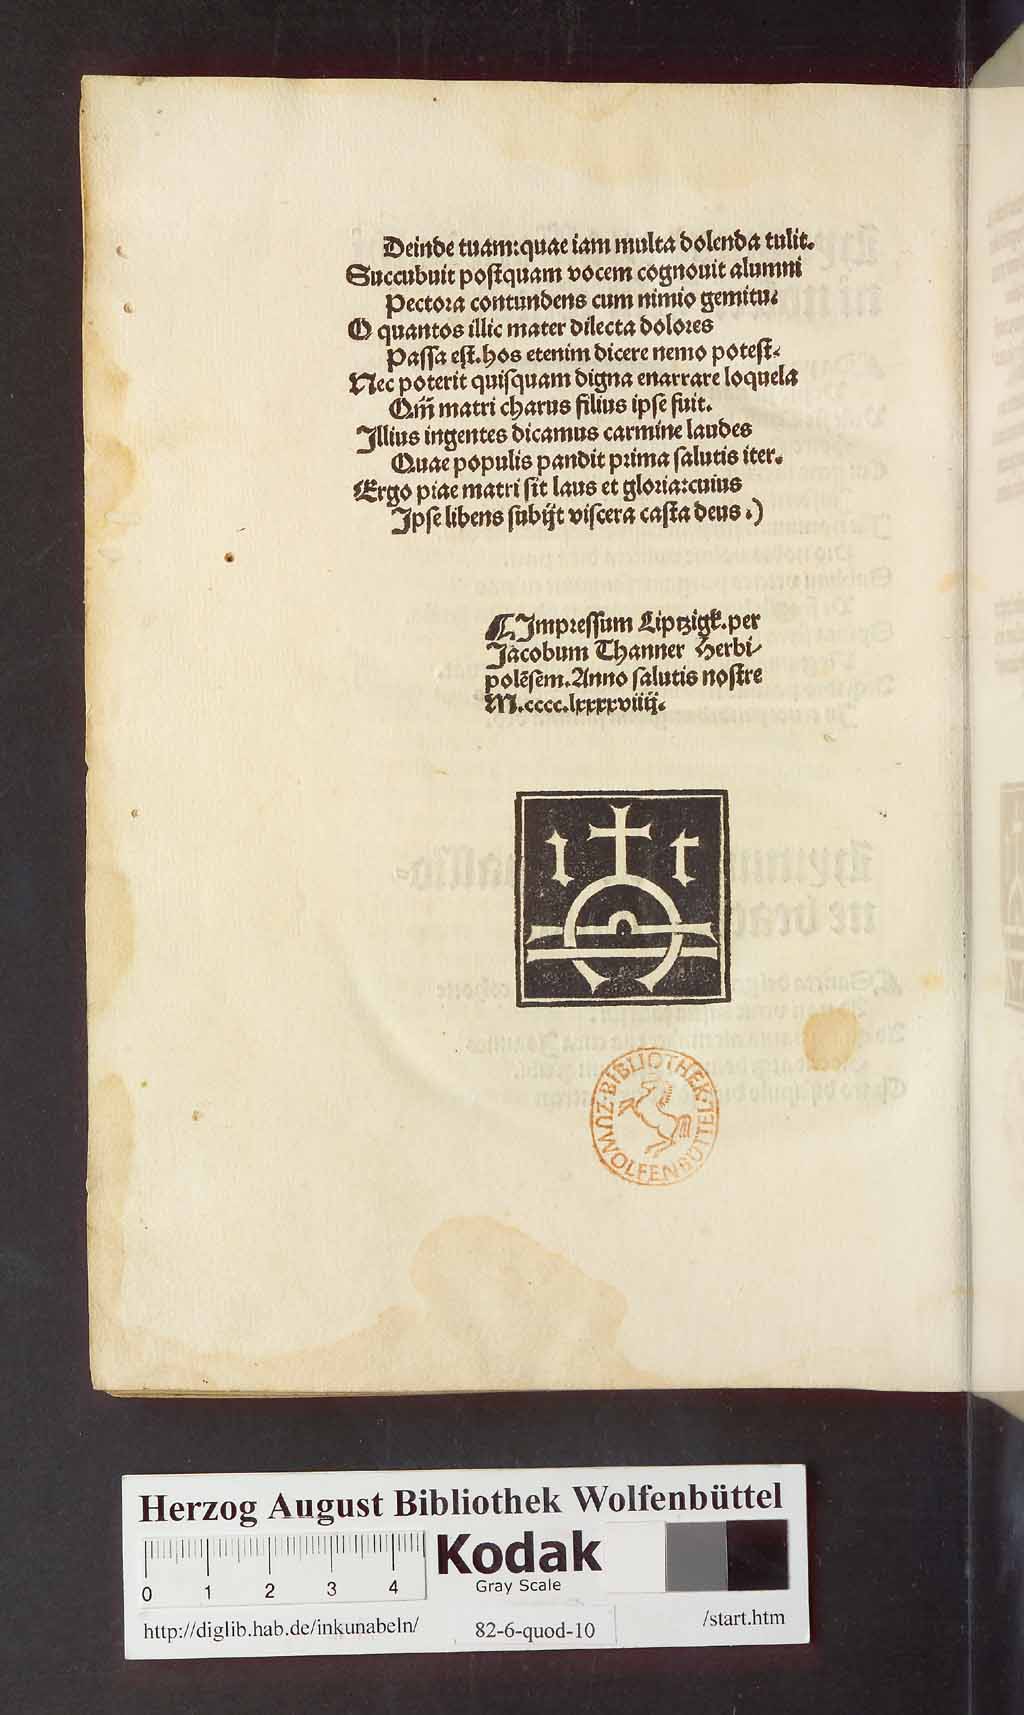 Deinde tuam:quae iam multa dolenda tulit.
Succubuit postquam vocem cognouit alumni
Pectora contundens cum nimio gemitu.
O quantos illic mater dilecta dolores
Passa est.hos etenim dicere nemo potest.
Nec poterit quisquam digna enarrare loquela
Qm̄ matri charus filius ipse fuit.
Illius ingentes dicamus carmine laudes
Quae populis pandit prima salutis iter.
Ergo piae matri sit laus et gloria:cuius
Ipse libens subijt viscera casta deus.)
¶ Impressum Liptzigk.per
Jacobum Thanner Herbi/
polēsem.Anno salutis nostre
M.cccc.lxxxxviiij.
i t
BIBLIOTHEK·ZU WOLFENBÜTTEL·
Herzog August Bibliothek Wolfenbüttel
0 1 2 3 4
Kodak
Gray Scale
http://diglib.hab.de/inkunabeln/ 82-6-quod-10 /start.htm